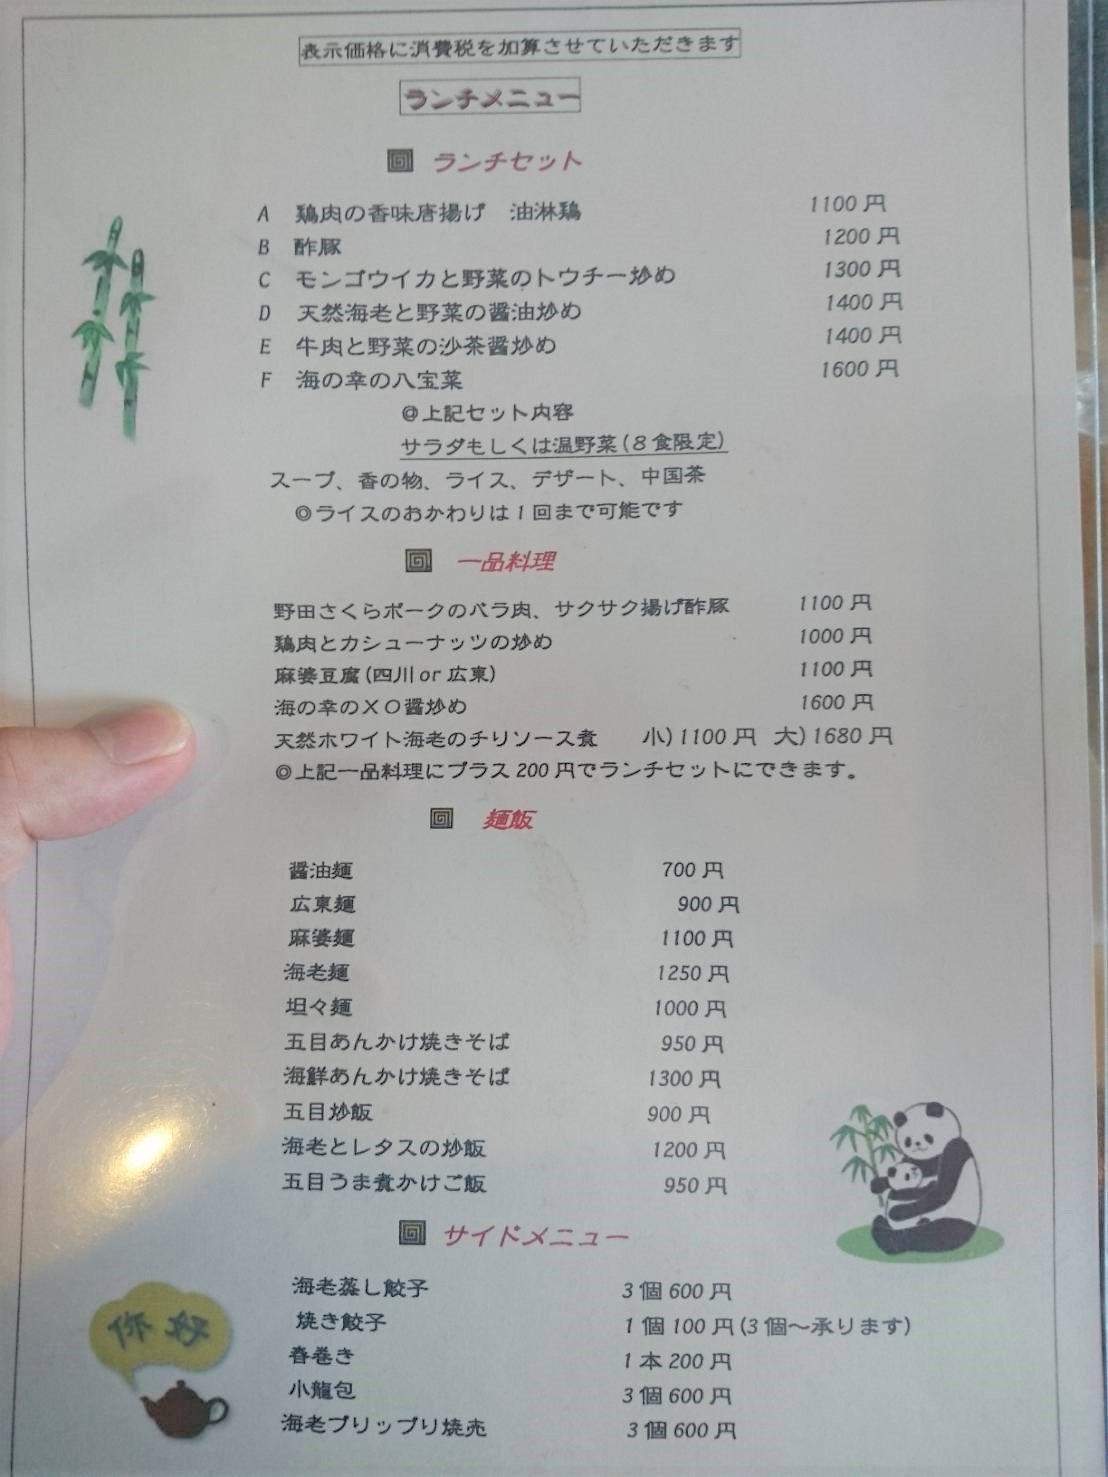 表示価格に消費税を加算させていただきます
ランチメニュー
ランチセット
A 鶏肉の香味唐揚げ 油淋鶏 1100円
B 酢豚 1200円
C モンゴウイカと野菜のトウチー炒め 1300円
D 天然海老と野菜の醤油炒め 1400円
E 牛肉と野菜の沙茶醤炒め 1400円
F 海の幸の八宝菜 1600円
◎上記セット内容
サラダもしくは温野菜(8食限定)
スープ、香の物、ライス、デザート、中国茶
◎ライスのおかわりは1回まで可能です
一品料理
野田さくらポークのバラ肉、サクサク揚げ酢豚 1100円
鶏肉とカシューナッツの炒め 1000円
麻婆豆腐(四川or広東) 1100円
海の幸のXO醤炒め 1600円
天然ホワイト海老のチリソース煮 小)1100円 大)1680円
◎上記一品料理にプラス200円でランチセットにできます。
麺飯
醤油麺 700円
広東麺 900円
麻婆麺 1100円
海老麺 1250円
坦々麺 1000円
五目あんかけ焼きそば 950円
海鮮あんかけ焼きそば 1300円
五目炒飯 900円
海老とレタスの炒飯 1200円
五目うま煮かけご飯 950円
サイドメニュー
海老蒸し餃子 3個600円
焼き餃子 1個100円(3個～承ります)
春巻き 1本200円
小龍包 3個600円
海老プリップリ焼売 3個600円